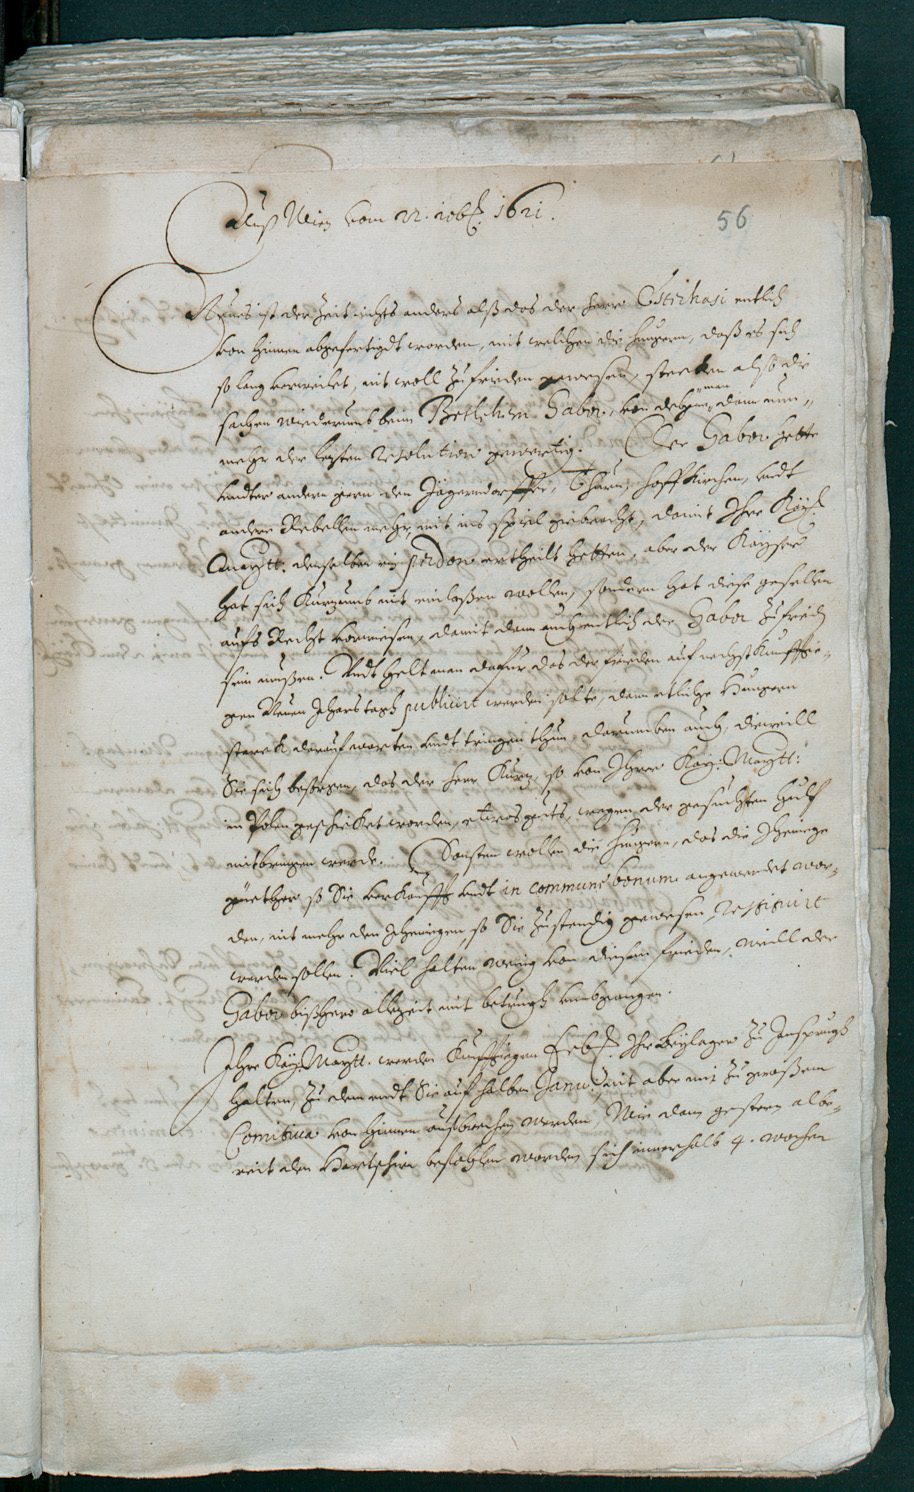 Auß Wien vom 22. 10bs. 1621.
56
Neues ist der Zeit nichts anders alß das der Herr Esterhasi entlich
von hinnen abgefertigdt worden, mit welchen die Hungern, daß es sich
so lang verweilet, nit woll zufrieden gewesen, stecken also die
sachen wiederumb beim Bethlehem Gabor, von deßen man dann nun-
mehr der lezten resolution gewertig. Der Gabor hette
vndter andern gern den Jägerndorffer, Thurn, Hoffkirchen, vndt
andere Rebellen mehr, mit ins spiel gebracht, damit Ihre Kay:
Maytt. denselben ein perdon ertheilt hetten, aber der Kayser
hat sich kurzumb nit einlaßen wollen, sondern hat diese gesellen
aufs Recht verwiesen, damit dann auch entlich der Gabor zufrieden
sein müßen. Vndt helt man dafür das der frieden auf nechst künffti-
gen Neuen Jhars tagh publicirt werden solte, dann etliche Hungern
starck darauf warten vndt tringen thun, darumben auch, dieweill
Sie sich besorgen, das der Herr Kurz, so von Ihrer Kay: Maytt:
in Polen geschicket worden, etwas guts, wegen der gesuchten hülf
mitbringen werde. Sonsten wollen die Hungern, das die Jhenige
güether so Sie verkaufft vndt in commune bonum angewendet wor-
den, nit mehr den Jhenigen so Sie zustendig gewesen, restituirt
werden sollen. Viel halten wenig von diesem frieden, weill der
Gabor bißhero allezeit mit betrugh vmbgangen.
Ihre Kay: Maytt. werden künfftigen Febr. Ihr Beylager zu Insprugh
halten, zu dem endt Sie auf halben Januarij mit aber nit zu großem
Comitiua von hinnen aufbrechen werden, Wie dann gestern albe-
reit den Hartschiern befohlen worden, sich innerhalb 4. wochen